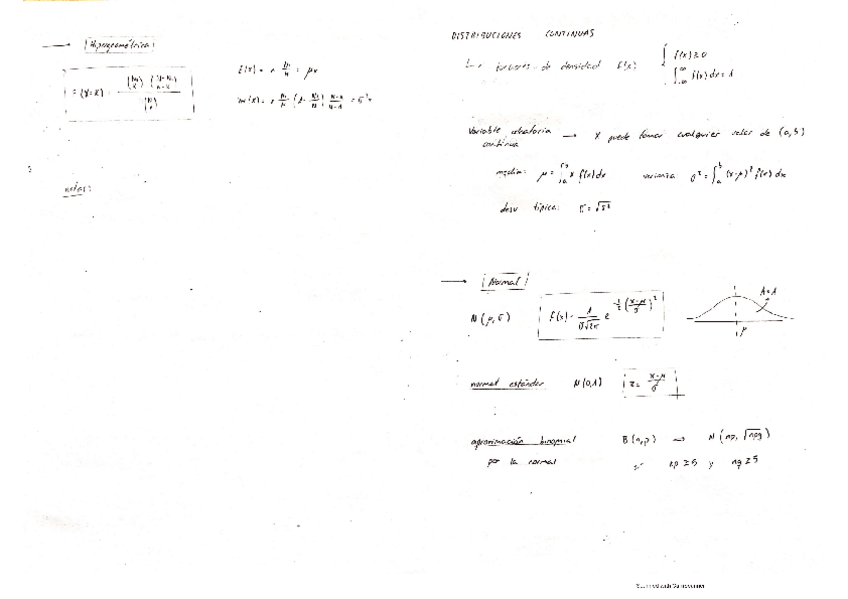 → Hipergeométrica
P(X=x) = \frac{\binom{N_1}{x} \binom{N-N_1}{n-x}}{\binom{N}{n}}
E(x) = n \frac{N_1}{N} = μ
var(x) = n \frac{N_1}{N} (1 - \frac{N_1}{N}) \frac{N-n}{N-1} = σ²
notas:
DISTRIBUCIONES CONTINUAS
funciones de densidad f(x) { f(x) ≥ 0
∫_{-∞}^{∞} f(x) dx = 1
Variable aleatoria → X puede tomar cualquier valor de (a,b)
continua
media: μ = ∫_a^b x f(x) dx varianza σ² = ∫_a^b (x-μ)² f(x) dx
desv típica: σ = √σ²
→ Normal
N(μ,σ) f(x) = \frac{1}{σ√2π} e^{-\frac{1}{2}(\frac{x-μ}{σ})^2}
A=1
μ
normal estándar N(0,1) z = \frac{x-μ}{σ}
aproximación binomial B(n,p) → N(np, √npq)
por la normal si np ≥ 5 y nq ≥ 5
Scanned with CamScanner